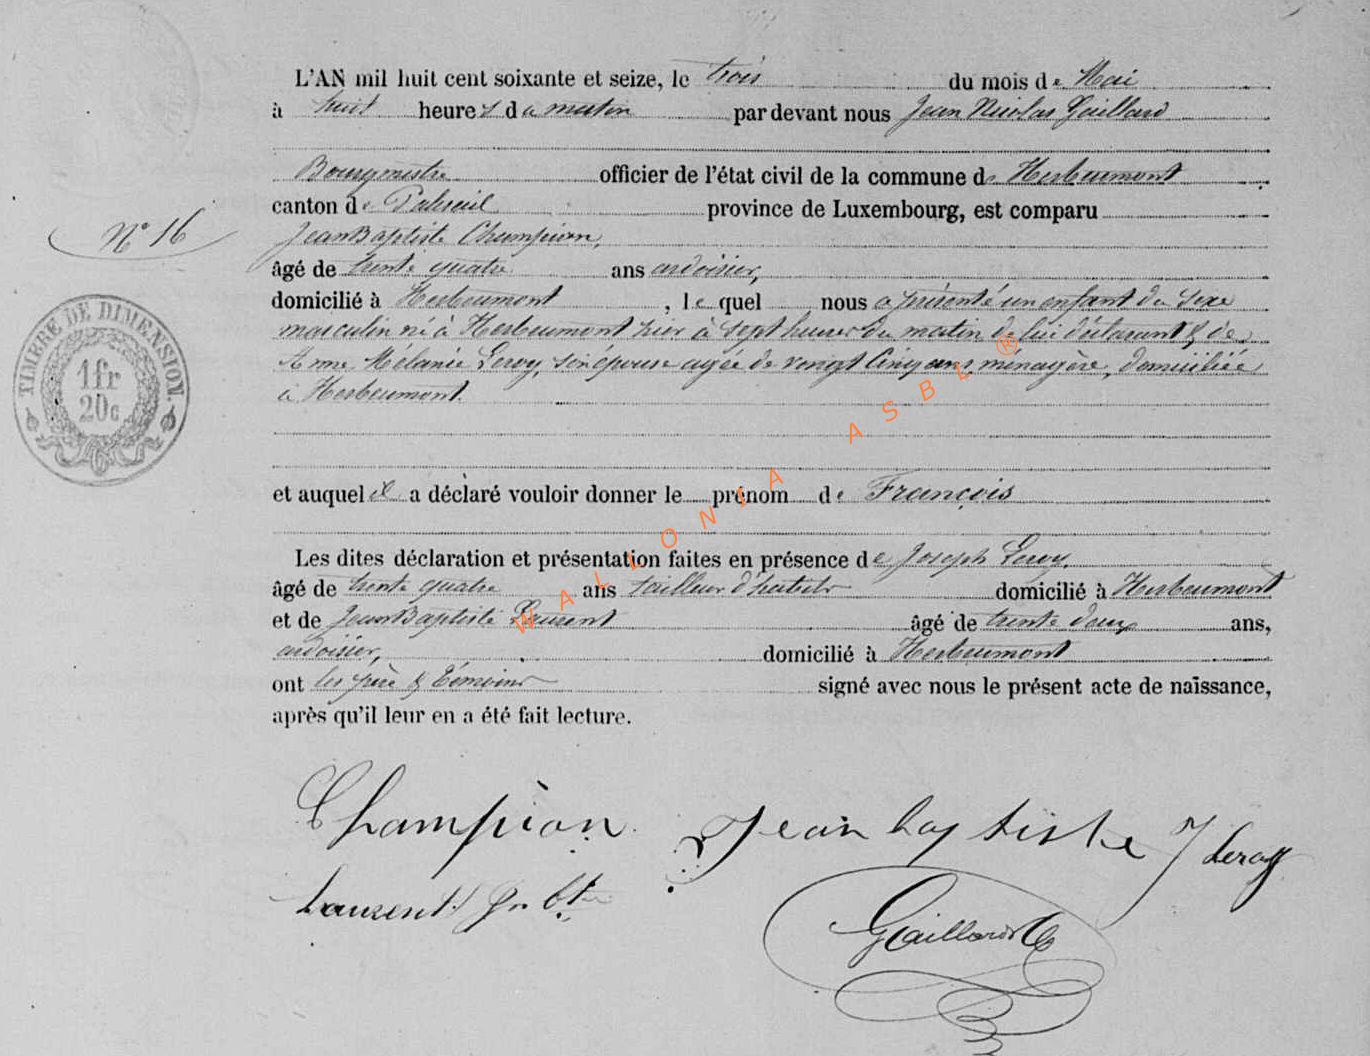 L'AN mil huit cent soixante et seize, le trois du mois de Mai
à huit heures du matin par devant nous Jean Nicolas Gaillard
Bourgmestre officier de l'état civil de la commune de Herbeumont
canton de Paliseul province de Luxembourg, est comparu
N° 16
Jean Baptiste Champion,
âgé de trente quatre ans ardoisier,
domicilié à Herbeumont, le quel nous a présenté un enfant du sexe
masculin né à Herbeumont hier à sept heures du matin de lui déclarant & de
Anne Mélanie Leroy, son épouse agée de vingt cinq ans, ménagère, domiciliée
à Herbeumont.
TIMBRE DE DIMENSION.
1fr
20c
et auquel il a déclaré vouloir donner le prénom de François
Les dites déclaration et présentation faites en présence de Joseph Leroy,
âgé de trente quatre ans tailleur d'habits domicilié à Herbeumont
et de Jean Baptiste Laurent âgé de trente deux ans,
ardoisier, domicilié à Herbeumont
ont les père & témoins signé avec nous le présent acte de naïssance,
après qu'il leur en a été fait lecture.
Champion Jean baptiste J Leroy
Laurent Jn Bte
Gaillard
WALLONIA ASBL ®